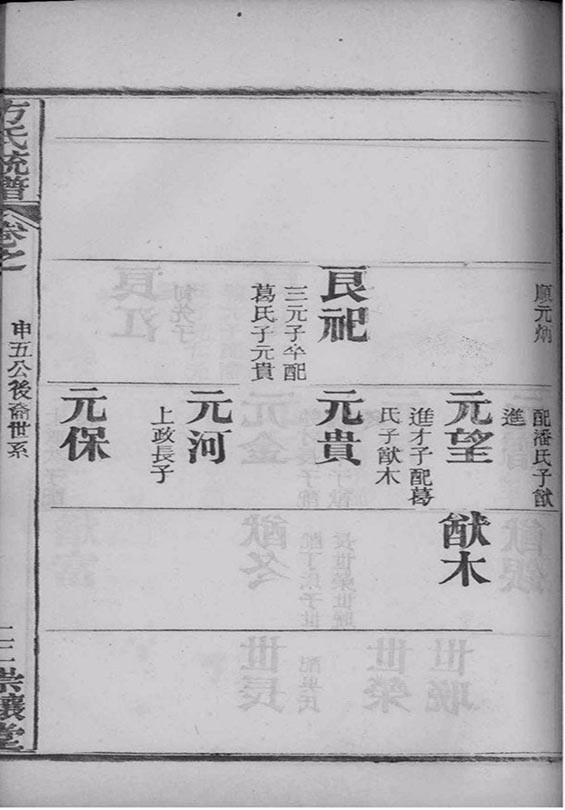 順元炳
良祀
三元子卒配
葛氏子元貴
配潘氏子猷
進
元望
進才子配葛
氏子猷木
元貴
元河
上政長子
元保
猷木
方氏統譜
卷之
申五公後裔世系